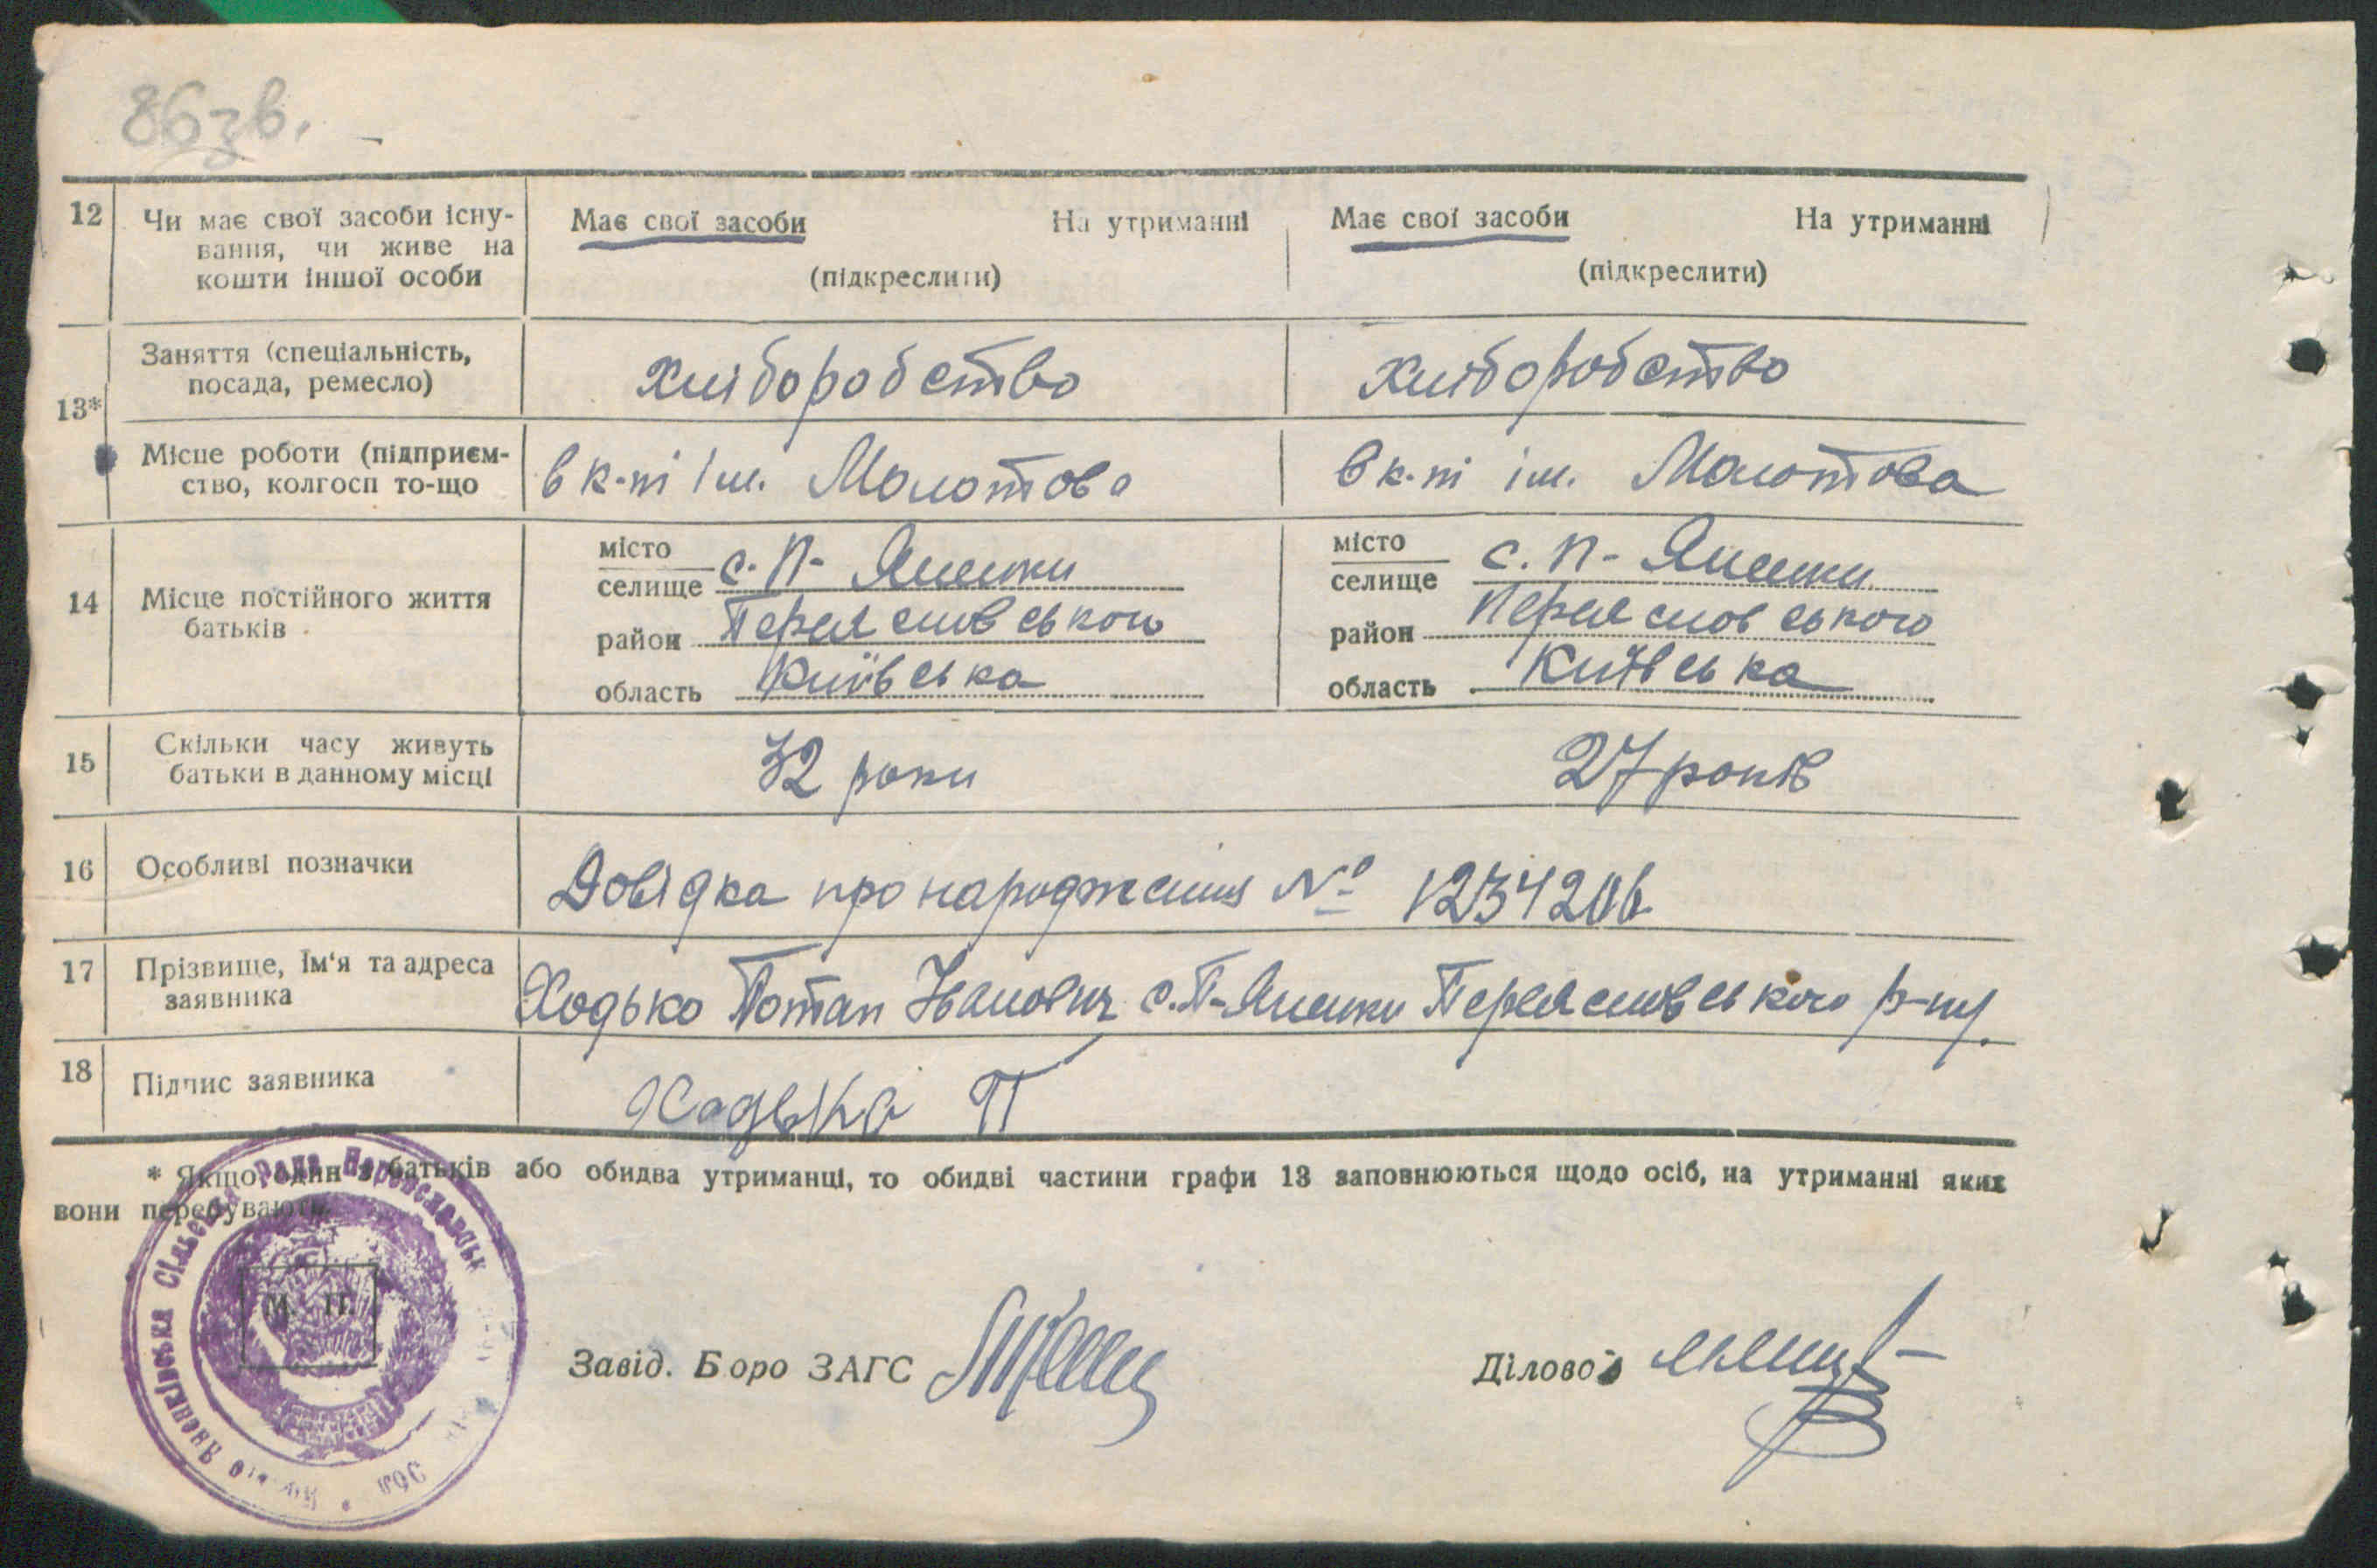 86зв.
12 Чи має свої засоби існу- Має свої засоби На утриманні Має свої засоби На утриманні
вання, чи живе на
кошти іншої особи (підкреслити) (підкреслити)
13* Заняття (спеціальність, хліборобство хліборобство
посада, ремесло)
Місце роботи (підприєм- в к-пі ім. Молотова в к-пі ім. Молотова
ство, колгосп то-що
14 Місце постійного життя місто с. П- Яненки місто с. П- Яненки
батьків селище селище
район Переяславського район Переяславського
область Київська область Київська
15 Скільки часу живуть 32 роки 27 років
батьки в данному місці
16 Особливі позначки Довідка про народження № 1234206
17 Прізвище, Ім'я та адреса Ходько Потап Іванович с. П-Яненки Переяславського р-ну.
заявника
18 Підпис заявника Ходько П
* Якщо один з батьків або обидва утриманці, то обидві частини графи 13 заповнюються щодо осіб, на утриманні яких
вони перебувають.
Яненківська Сільська рада Переяславськ
М. П.
Завід. Боро ЗАГС
Діловод